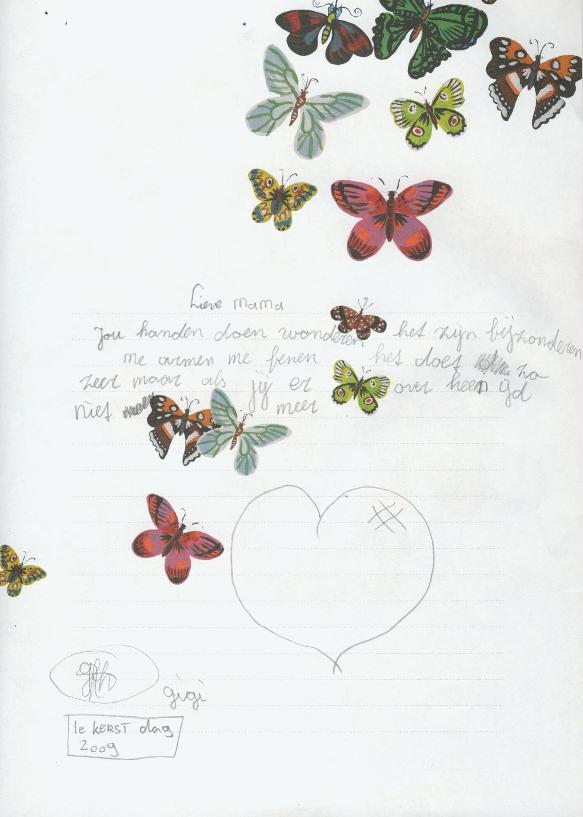 Lieve mama
Jou handen doen wonderen het zijn bijzonderen
me armen me benen het doet zo
zeer maar als jij er over heen ijd
niet meer
gigi
1e KERST dag
2009